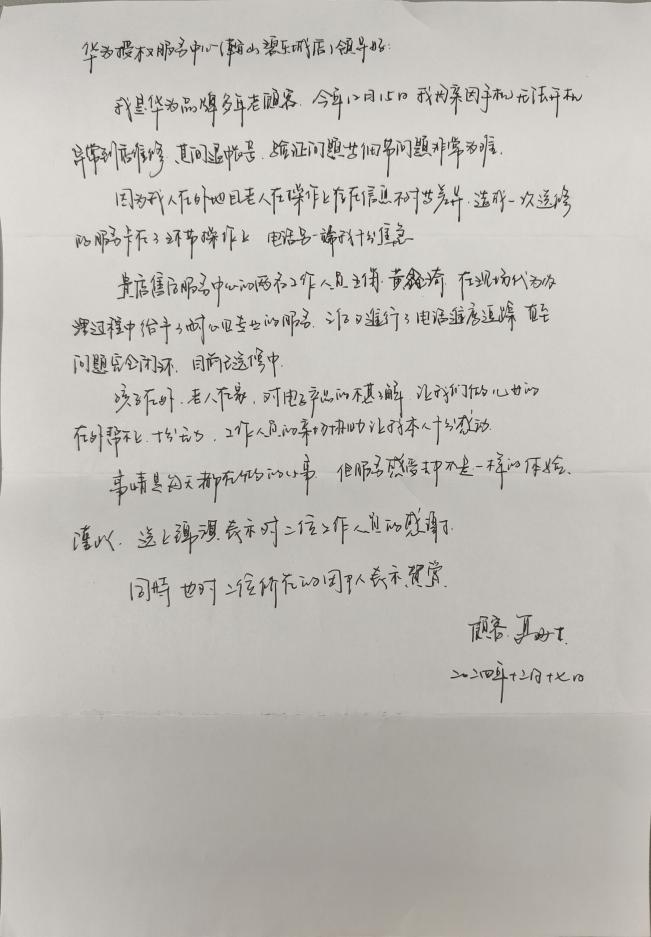 华为授权服务中心(龙山碧乐城店)领导好:
我是华为品牌多年老顾客. 今年12月15日我母亲因手机无法开机
异常到店维修. 其间退帐号, 验证问题等细节问题非常为难.
因为我人在外地且老人在操作上存在信息不对等差异. 造成一次送修
的服务卡在了环节操作上 电话另一端我十分焦急
贵店售后服务中心的两名工作人员 黄鑫琦 在现场代为办
理过程中给予了耐心且专业的服务. 进行了电话进度追踪 直至
问题完全闭环. 目前已送修中.
孩子在外. 老人在家, 对电子产品的不甚了解 让我们做儿女的
在外帮不上 十分无力, 工作人员的亲切协助让我本人十分感动.
事情是每天都在做的小事. 但服务感受却不是一样的体验.
谨此. 送上锦旗表示对二位工作人员的感谢.
同时也对二位所在的团队表示赞赏.
顾客: 夏女士
二〇二四年十二月十七日